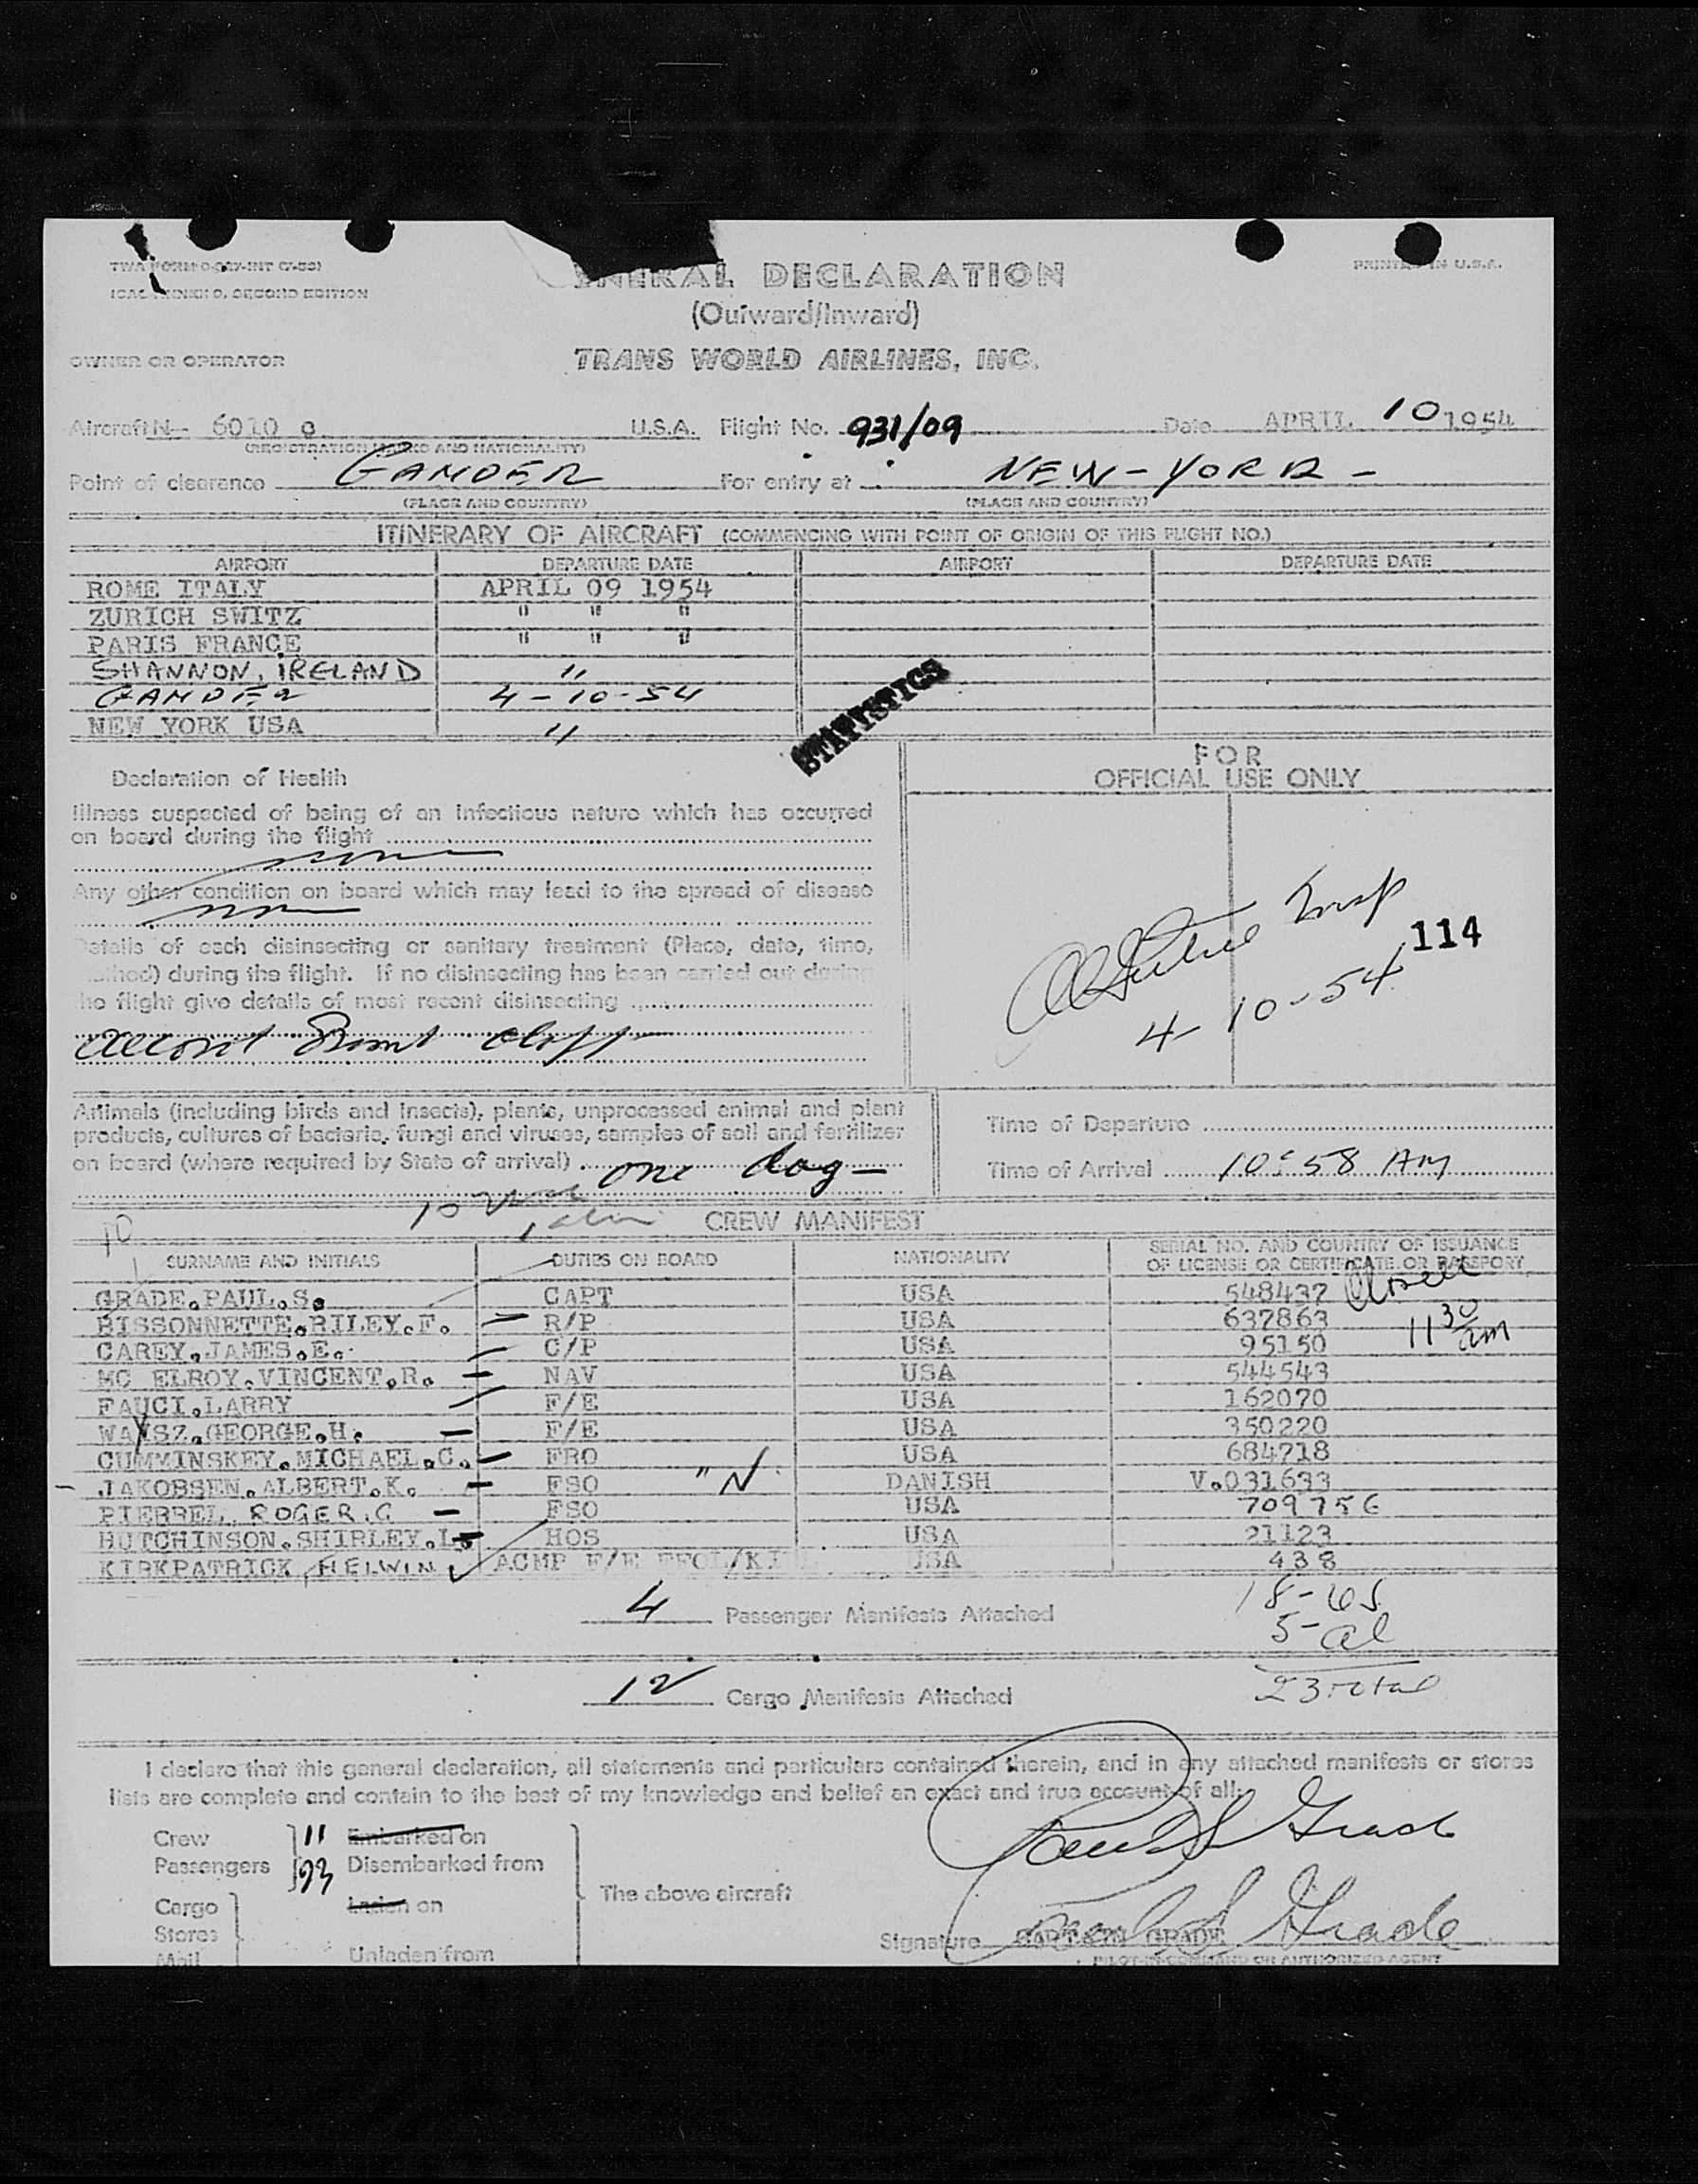 TWA FORM O-
ICAO ANNEX 9, SECOND EDITION
PRINTED IN U.S.A.
NERAL DECLARATION
(Outward/Inward)
OWNER OR OPERATOR TRANS WORLD AIRLINES, INC.
Aircraft N- 6010 U.S.A. Flight No. 931/09 Date APRIL 10 1954
(REGISTRATION MARKS AND NATIONALITY)
Point of clearance GANDER For entry at : NEW-YORK -
(PLACE AND COUNTRY) (PLACE AND COUNTRY)
ITINERARY OF AIRCRAFT (COMMENCING WITH POINT OF ORIGIN OF THIS FLIGHT NO.)
AIRPORT DEPARTURE DATE AIRPORT DEPARTURE DATE
ROME ITALY APRIL 09 1954
ZURICH SWITZ " " "
PARIS FRANCE " " "
SHANNON, IRELAND "
GANDER 4-10-54
NEW YORK USA "
STATISTICS
FOR
OFFICIAL USE ONLY
Declaration of Health
Illness suspected of being of an infectious nature which has occurred
on board during the flight
none
Any other condition on board which may lead to the spread of disease
none
Details of each disinsecting or sanitary treatment (Place, date, time,
method) during the flight. If no disinsecting has been carried out during
the flight give details of most recent disinsecting
Insp
114
4-10-54
Animals (including birds and insects), plants, unprocessed animal and plant
products, cultures of bacteria, fungi and viruses, samples of soil and fertilizer
on board (where required by State of arrival) one dog-
Time of Departure
Time of Arrival 10:58 AM
10
CREW MANIFEST
SURNAME AND INITIALS DUTIES ON BOARD NATIONALITY SERIAL NO. AND COUNTRY OF ISSUANCE
OF LICENSE OR CERTIFICATE OR PASSPORT
GRADE.PAUL.S. CAPT USA 548437
BISSONNETTE.RILEY.F. R/P USA 637863
1130 am
CAREY.JAMES.E. C/P USA 95150
MC ELROY.VINCENT.R. NAV USA 544543
FAUCI.LARRY F/E USA 162070
WAYSZ.GEORGE.H. F/E USA 350220
CUMMINSKEY.MICHAEL.C. FRO USA 684718
JAKOBSEN.ALBERT.K. FSO "N" DANISH V.031633
PIERREL. ROGER.G FSO USA 709756
HUTCHINSON.SHIRLEY.L. HOS USA 21123
KIRKPATRICK, HELWIN ACMP F/E USA 438
4 Passenger Manifests Attached
18-US
5-al
23 total
12 Cargo Manifests Attached
I declare that this general declaration, all statements and particulars contained therein, and in any attached manifests or stores
lists are complete and contain to the best of my knowledge and belief an exact and true account of all:
Crew 11 Embarked on
Passengers 23 Disembarked from
The above aircraft
Cargo Laden on
Stores
Mail Unladen from
Paul S Grade
Signature CAPTAIN GRADE Paul S Grade
PILOT-IN-COMMAND OR AUTHORIZED AGENT